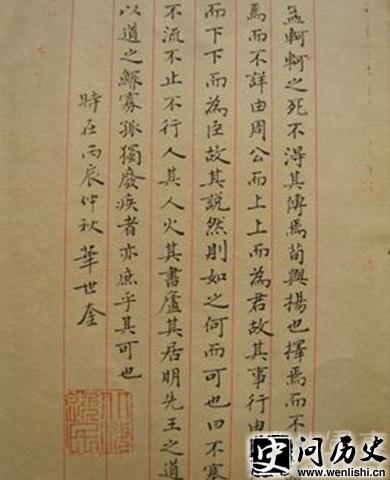 孟軻軻之死不得其傳焉荀與揚也擇焉而不
焉而不詳由周公而上上而為君故其事行由
而下下而為臣故其説然則如之何而可也曰不塞
不流不止不行人其人火其書廬其居明先王之道
以道之鰥寡孤獨廢疾者亦庶乎其可也
時在丙辰仲秋華世奎
问历史
www.wenlishi.cn